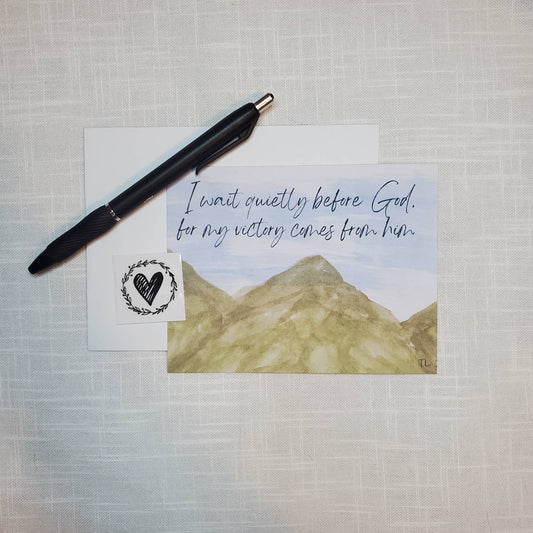 I wait quietly before God.
for my victory comes from him
TL